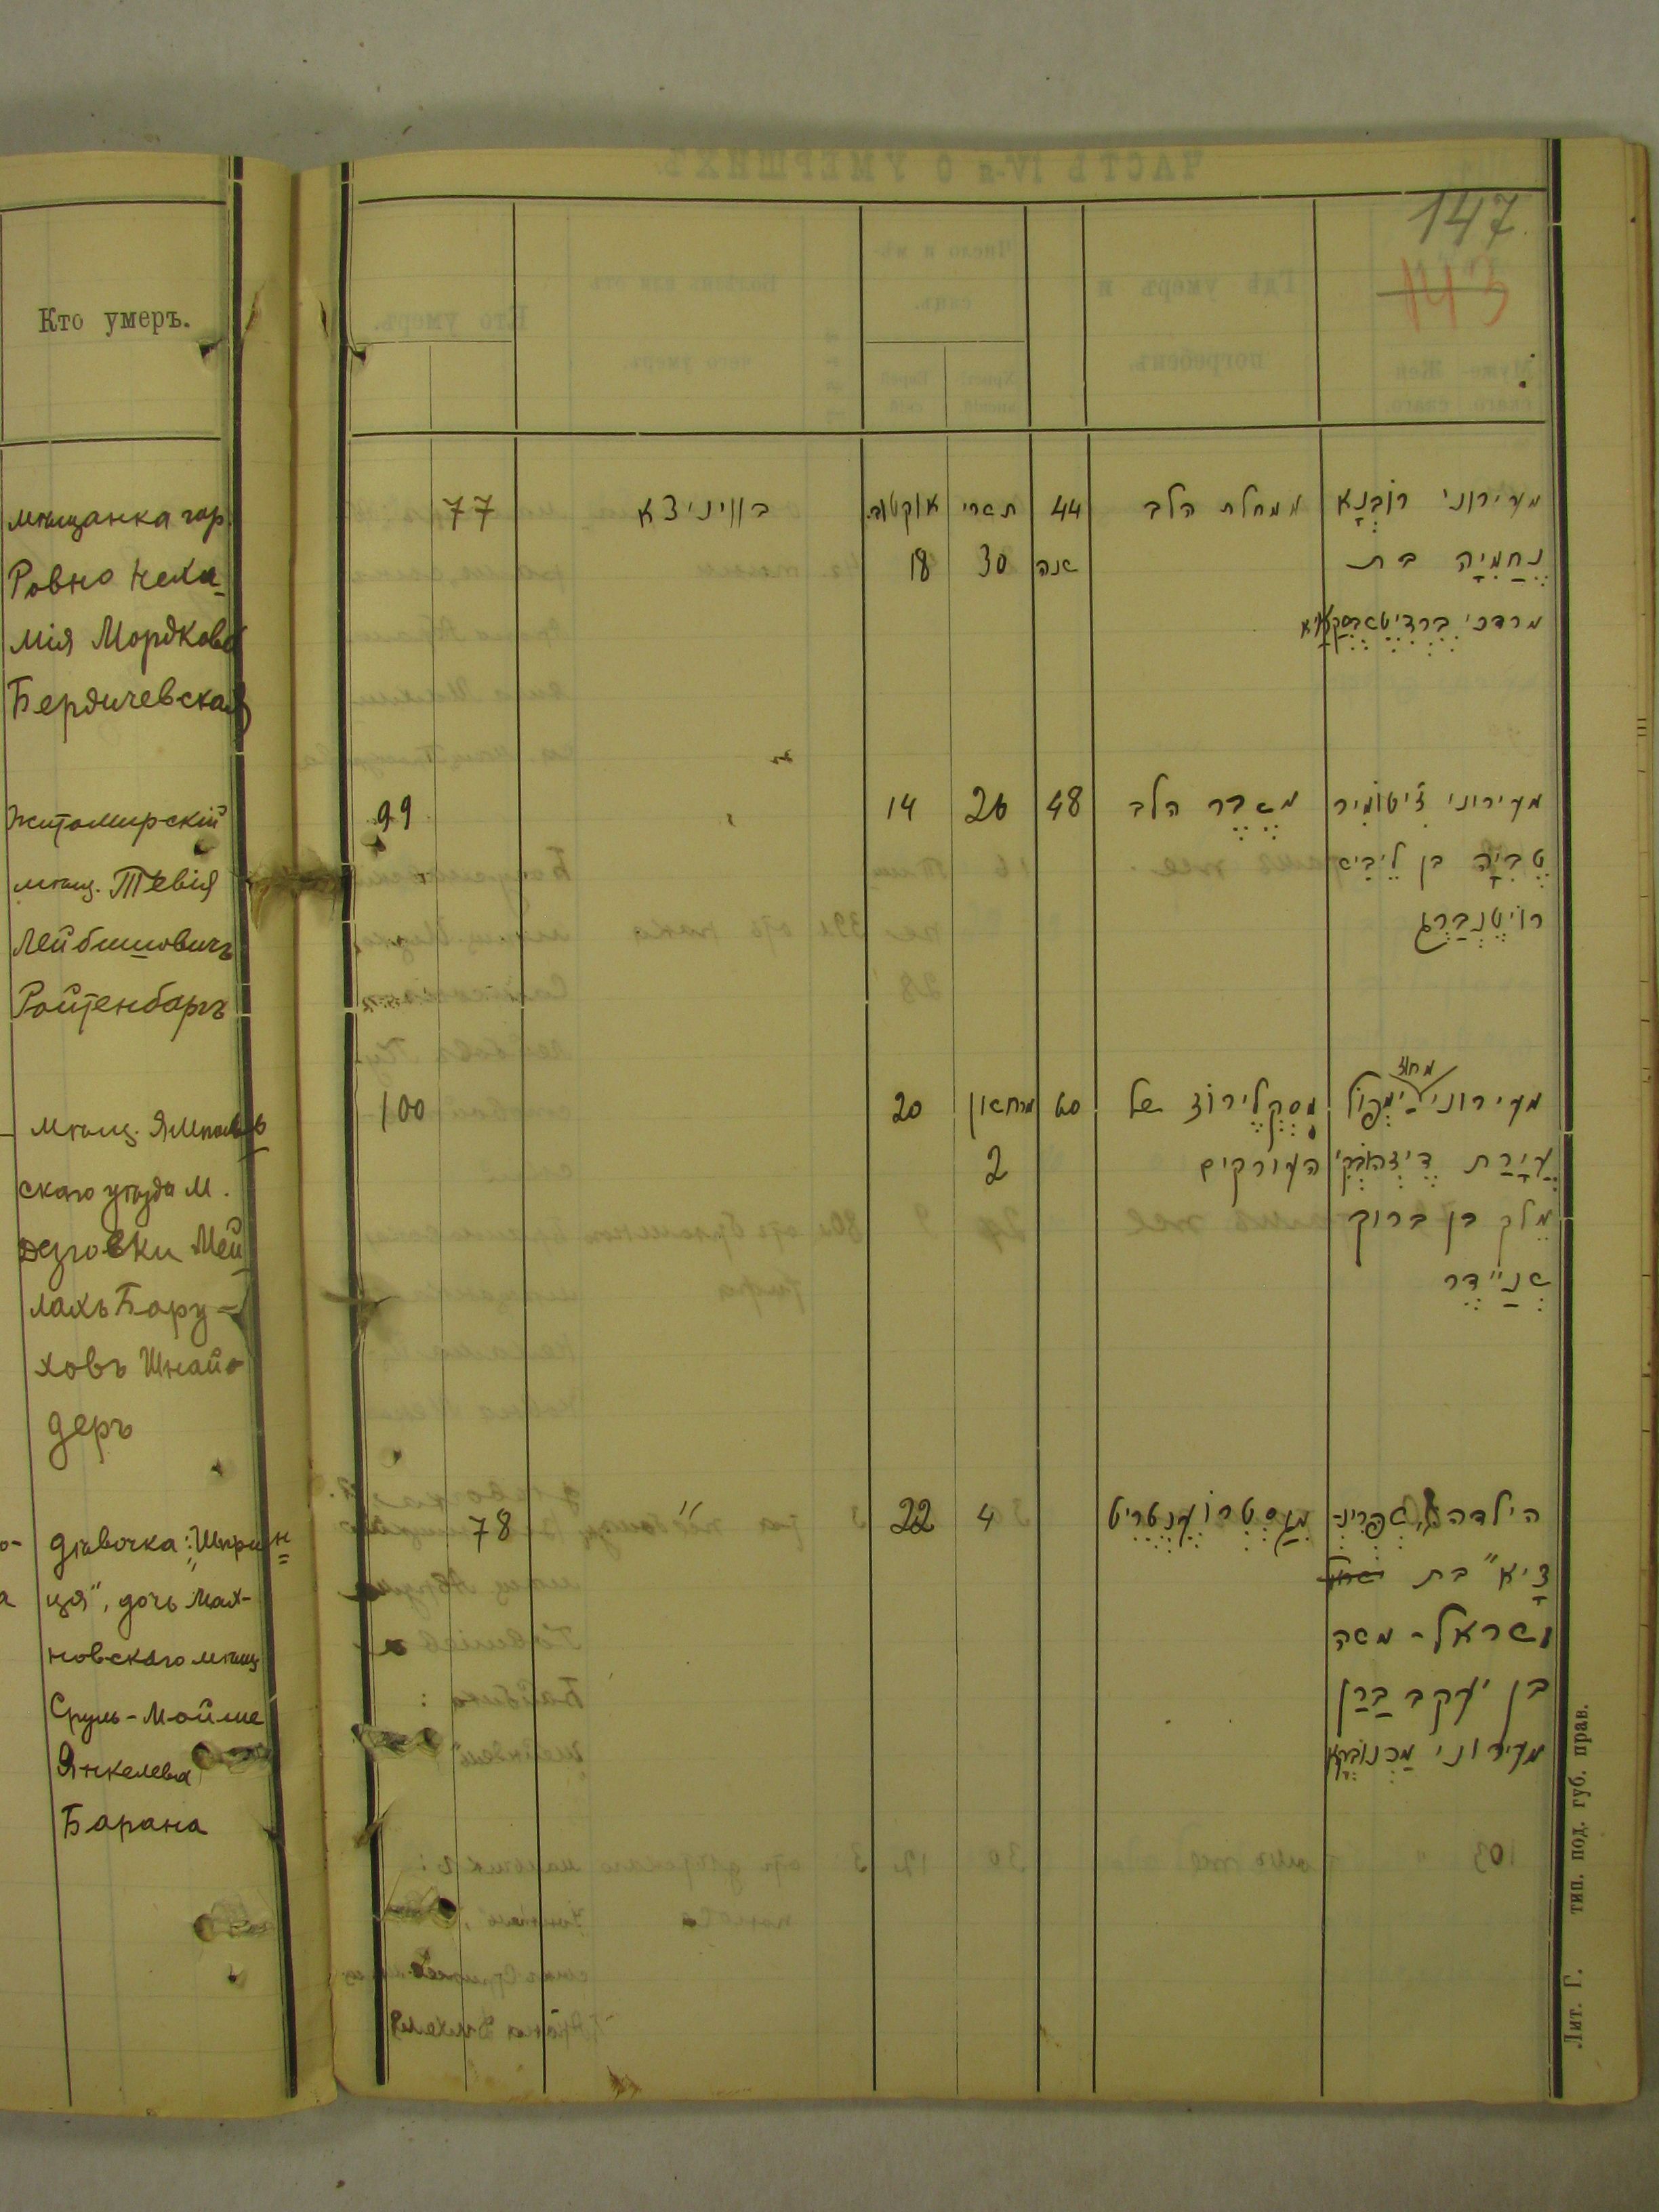 147
143
Кто умеръ.
мѣщанка гор.
Ровно Неха-
мія Мордкова
Бердичевская
Житомирскій
мѣщ. Тевія
Лейбишовичъ
Ройтенбаргъ
мѣщ. Ямполь-
скаго уѣзда м.
Дзговки Мей-
лахъ Бору-
ховъ Шнай-
деръ
дѣвочка: "Шприн-
ця", дочь Мах-
новскаго мѣщ.
Сруль-Мойше
Янкелева
Барана
77 בוויניצא אוקטוב. תשרי 44 ממחלת הלב מעירוני רוֹבְנָא
18 30 שנה נֶחַמִיָה בת
מרדכי בֶּרְדִיטשֶבְסְקַאיא
99 14 26 48 משֶבֶר הלב מעירוני זִיטוֹמִיר
טֶבִיָה בן לֵיבִיש
רוֹיטֶנְבַּרְג
100 20 מרחשון 60 מסְקְלֶירוֹז של מעירוני יַמְפּוֹל
מחוז
2 העורקים עֲיָרַת
מֵלך בן ברוך
שְנַיידֶר
78 " 22 4 מִגַסְטְרוֹעֶנְטֶרִיט הילדה שְפְּרִינ-
צִיא" בת
ישראל-משה
בן יעקב בַּרַן
מעירוני מַכְנוֹבְקָא
Лит. Г. тип. под. губ. прав.